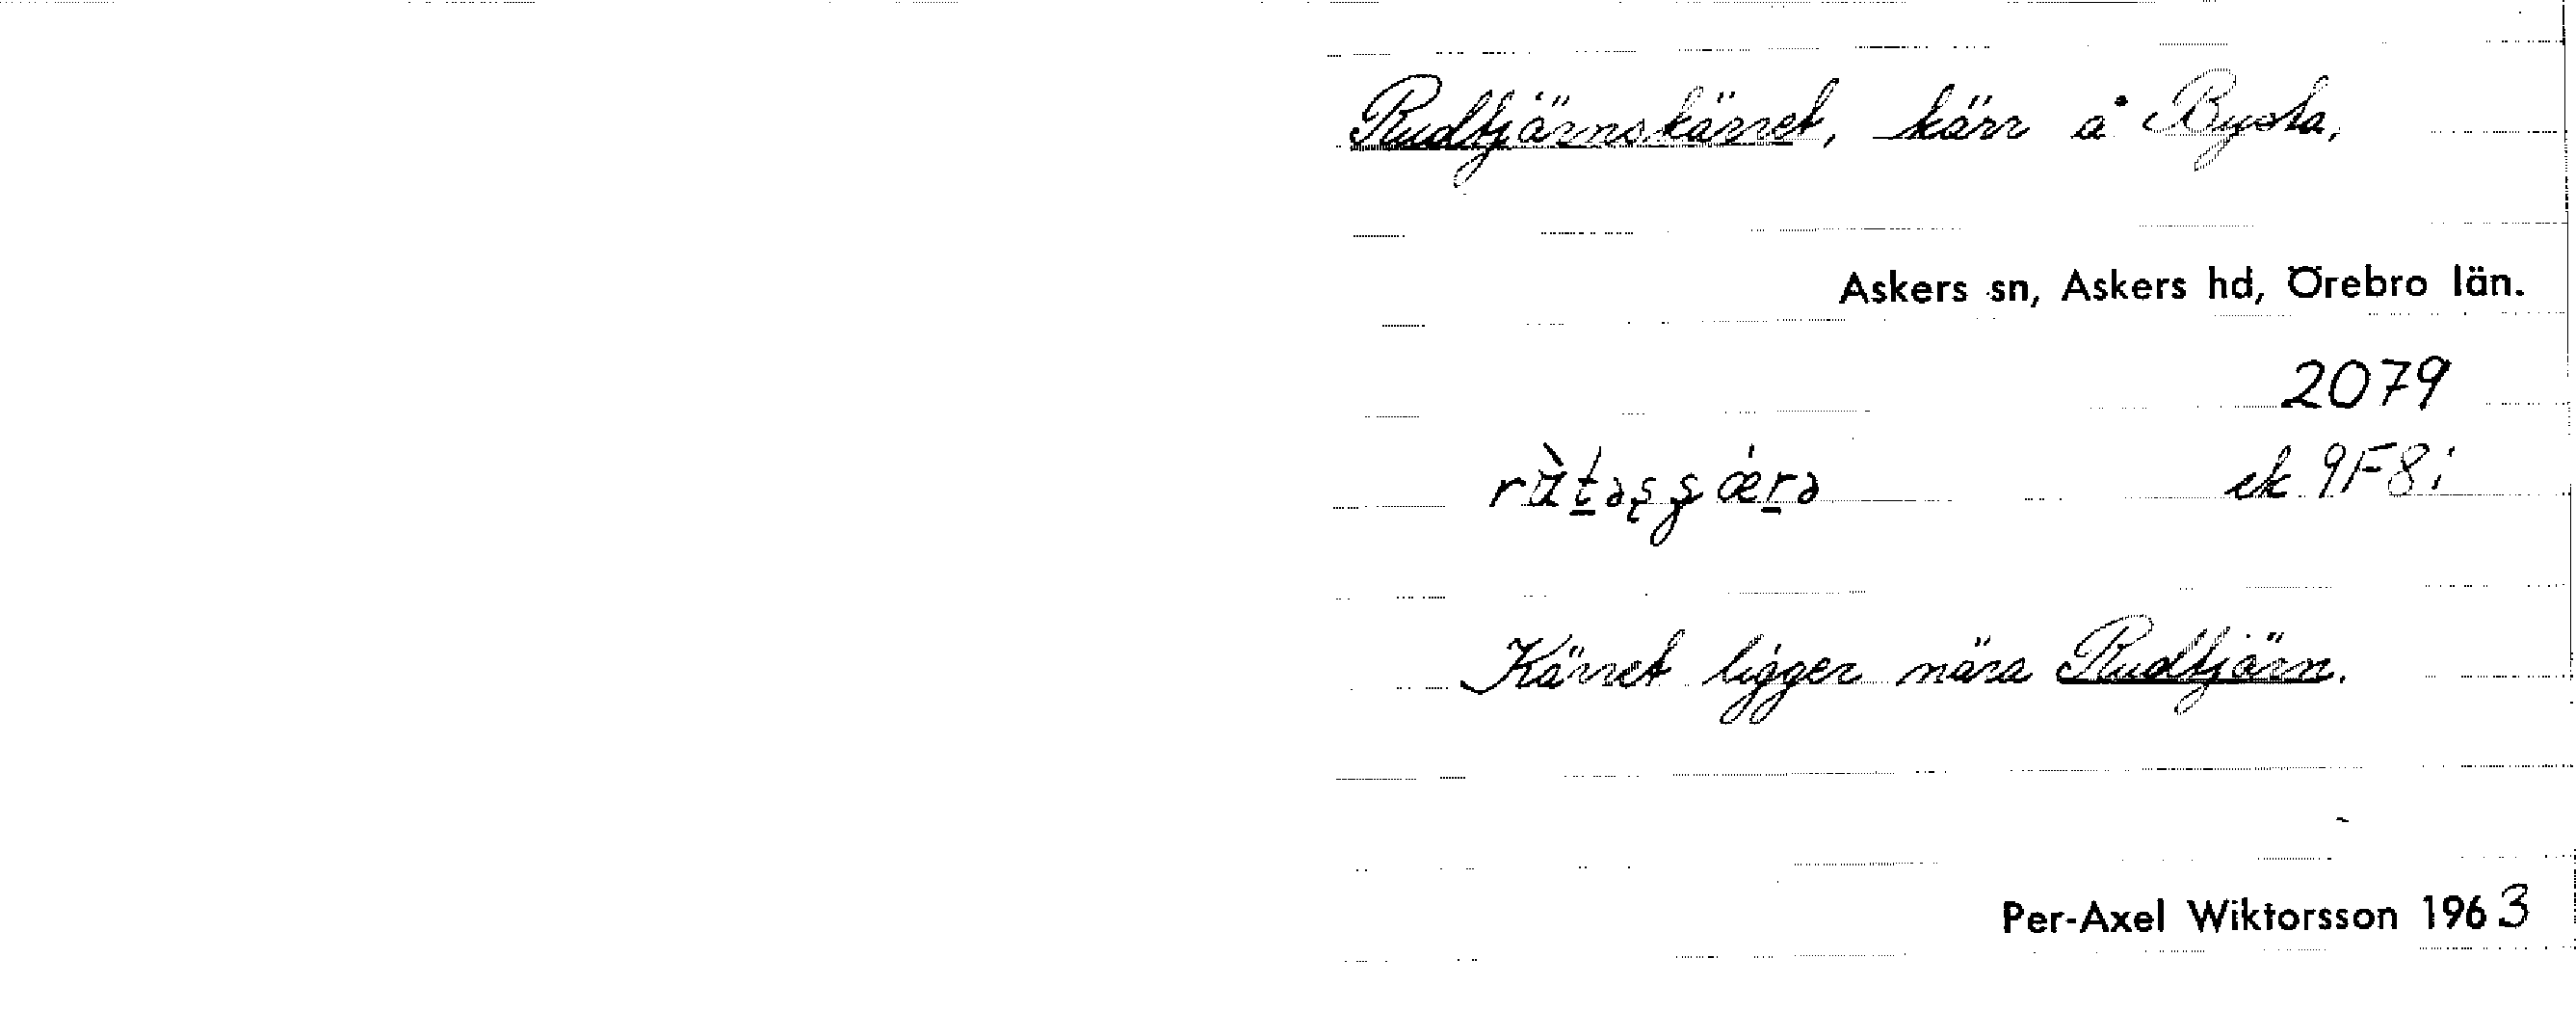 Rudtjärnskärret, kärr å Bysta,
Askers sn, Askers hd, Örebro län.
2079
ek 9F8i
Kärret ligger nära Rudtjärn.
Per-Axel Wiktorsson 1963